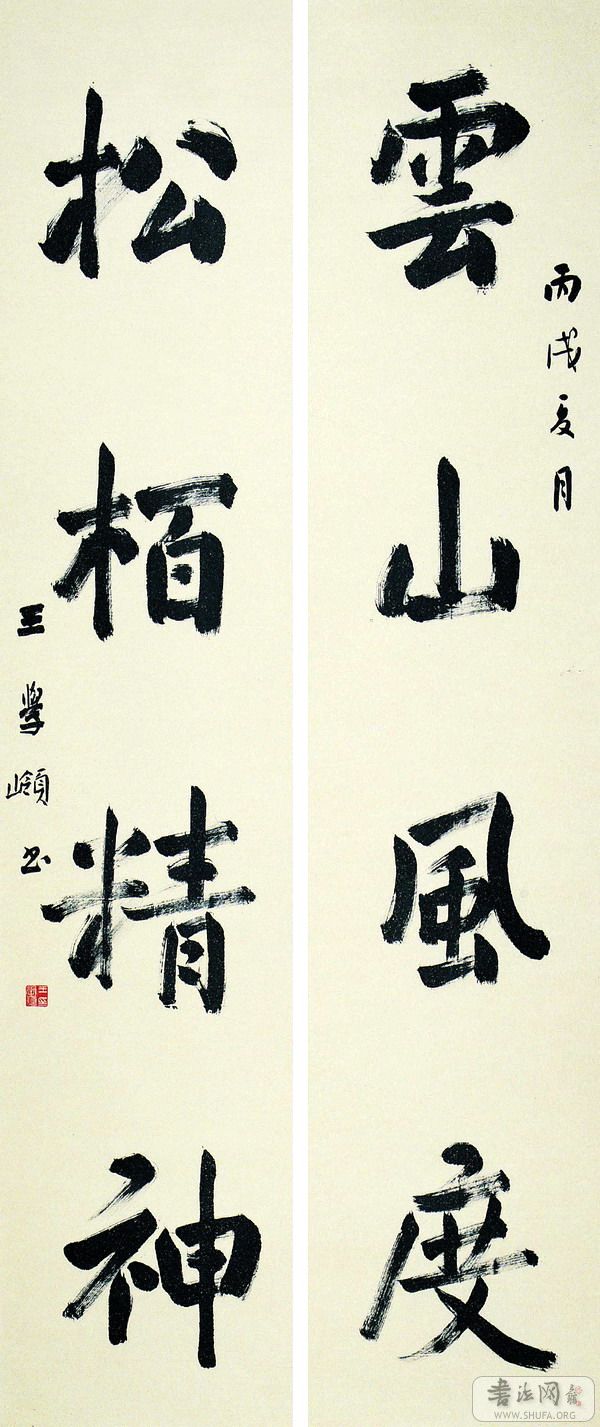 雲山風度
丙戌夏月
松栢精神
王學嶺书
書法网
WWW.SHUFA.ORG